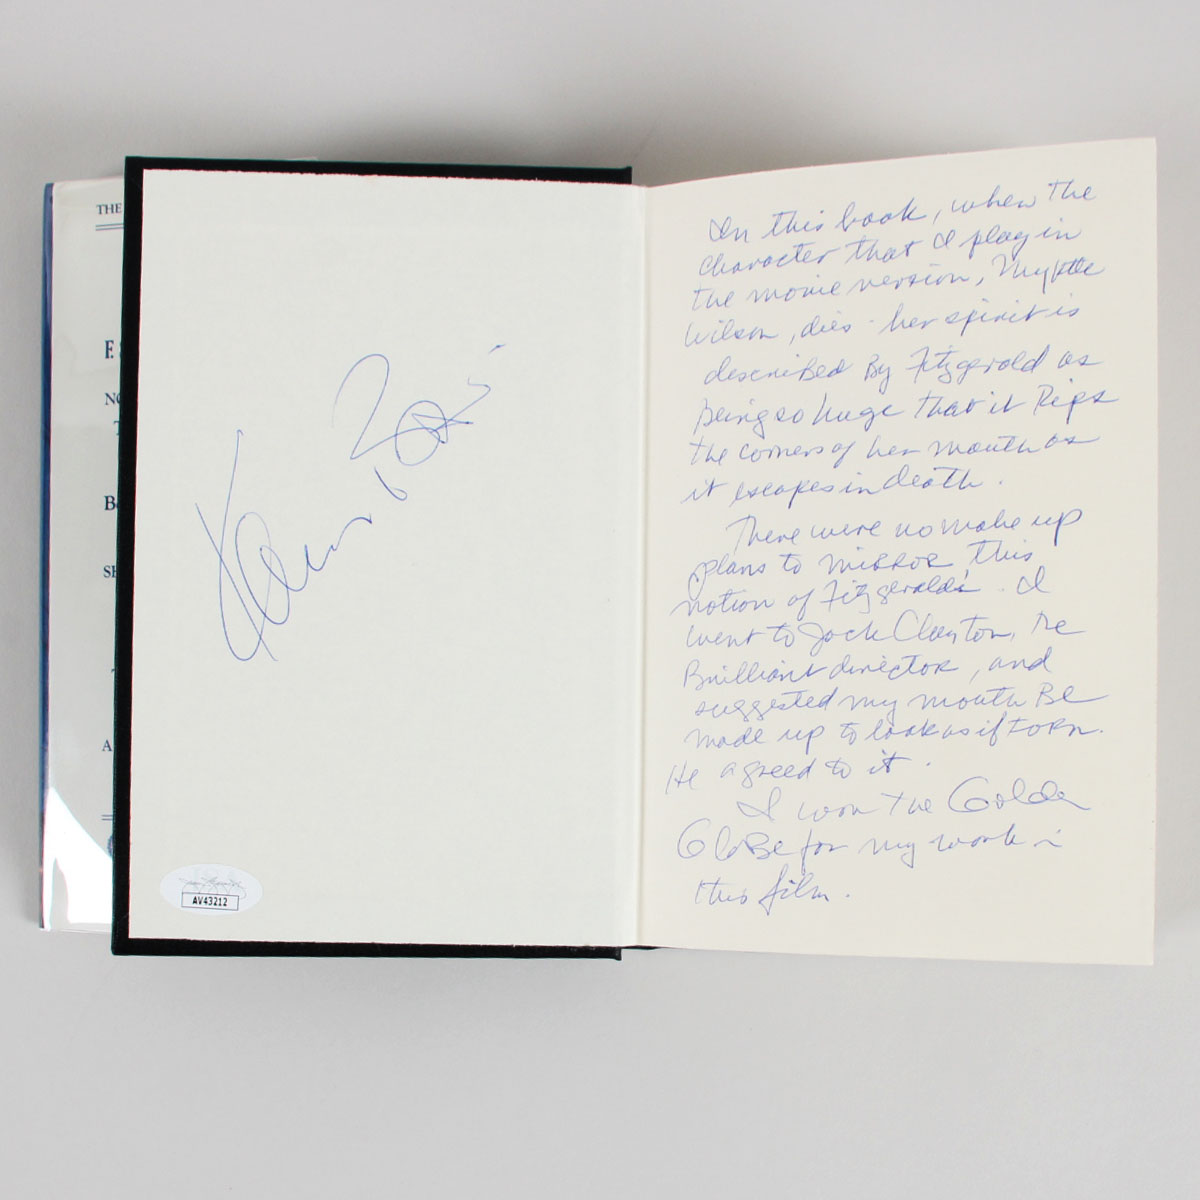 THE
F. S
NO
T
B
SH
T
A
Karen Black
AV43212
In this book, when the
character that I play in
the movie version, Myrtle
Wilson, dies - her spirit is
described By Fitzgerald as
Being so huge that it Rips
the corners of her mouth as
it escapes in death.
There were no make up
plans to miRROR this
notion of Fitzgerald's. I
went to Jack Clayton, the
Brilliant director, and
suggested my mouth Be
made up to look as if toRn.
He agreed to it.
I won the Golden
GloBe for my work in
this film.